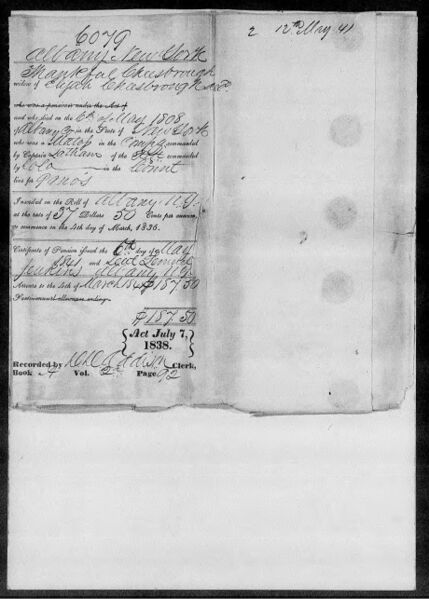 6079
2 12th May 41
Albany New York
Thankful Chesbrough
widow of Elijah Chesbrough decd
who was a pensioner under the Act of
and who died on the 6th of May 1808
of Albany in the State of New York
who was a in the Compy commanded
by Captain Latham of the commanded
by Colo in the Connt
line for
Inscribed on the Roll of Albany N.Y.
at the rate of 37 Dollars 50 Cents per annum,
to commence on the 4th day of March, 1836.
Certificate of Pension issued the 6th day of May
1841 and Sent
Jenkins Albany N.Y.
Arrears to the 4th of March 1841 $187.50
Semi-annual allowance ending
$187.50
{Act July 7,
1838.}
Recorded by Clerk,
Book A Vol. 2 Page 92